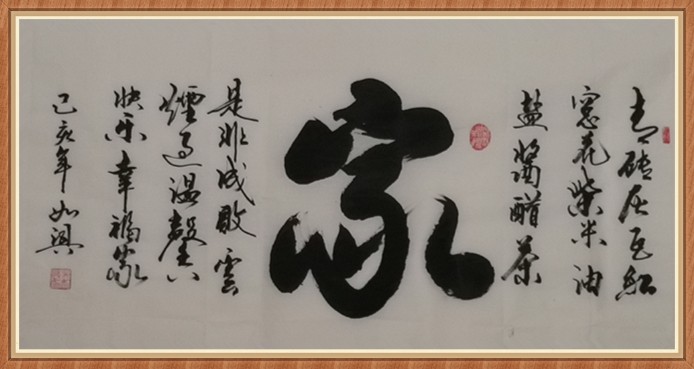 青砖灰瓦红
窗花柴米油
盐酱醋茶
家
是非成败雲
煙过温馨
快乐幸福家
己亥年 如興